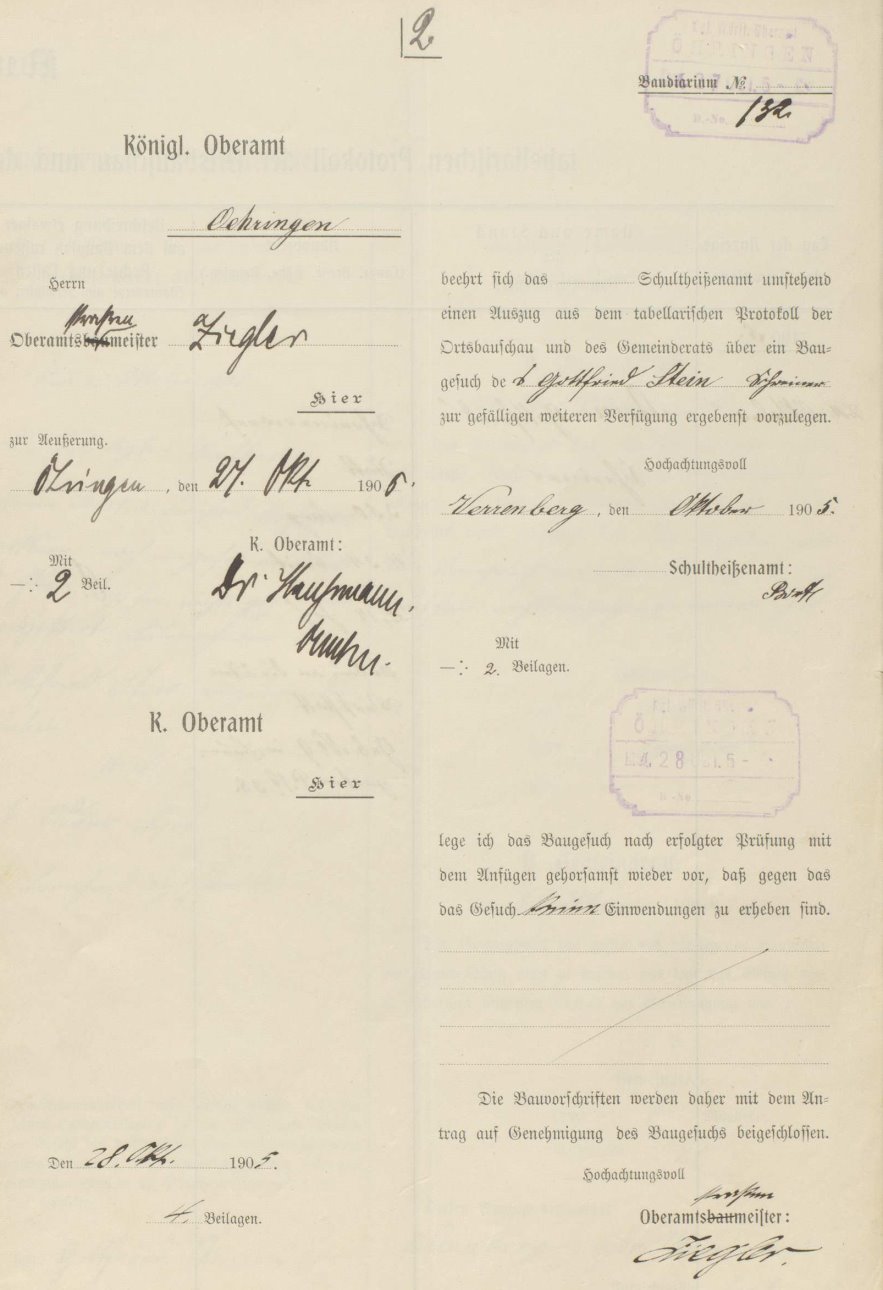 2
Baudiarium №
132
Königl. Oberamt
Oehringen
Herrn
straßen
Oberamtsbaumeister Ziegler
Hier
zur Aeußerung.
Öhringen, den 27. Okt. 1905.
K. Oberamt:
Mit
—: 2 Beil.
Dr.
beehrt sich das Schultheißenamt umstehend
einen Auszug aus dem tabellarischen Protokoll der
Ortsbauschau und des Gemeinderats über ein Bau=
gesuch des Gottfried Stein Schreiner
zur gefälligen weiteren Verfügung ergebenst vorzulegen.
Hochachtungsvoll
Verrenberg, den Oktober 1905.
Schultheißenamt:
Mit
—: 2. Beilagen.
K. Oberamt
Hier
28
lege ich das Baugesuch nach erfolgter Prüfung mit
dem Anfügen gehorsamst wieder vor, daß gegen das
das Gesuch keine Einwendungen zu erheben sind.
Die Bauvorschriften werden daher mit dem An=
trag auf Genehmigung des Baugesuchs beigeschlossen.
Den 28. Okt. 1905.
4. Beilagen.
Hochachtungsvoll
straßen
Oberamtsbaumeister:
Ziegler.